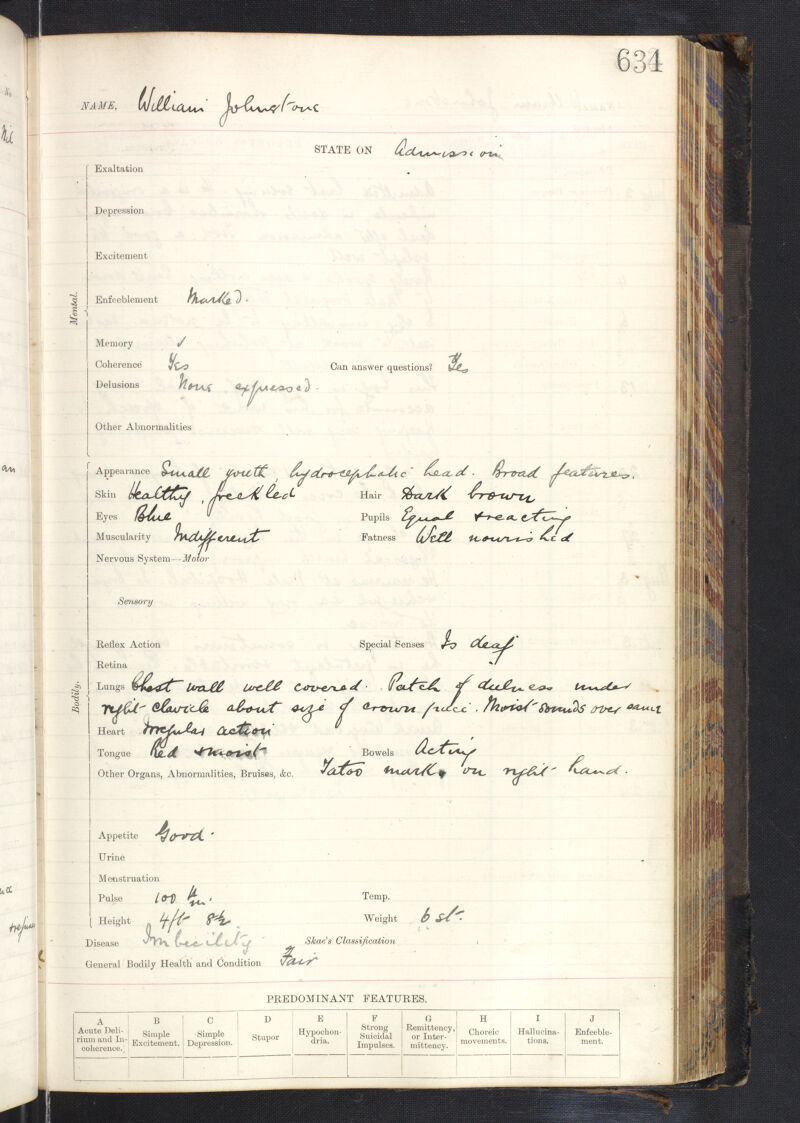 634
NAME, William Johnstone
STATE ON Admission
Mental.
Exaltation
Depression
Excitement
Enfeeblement Marked.
Memory ✓
Coherence Yes Can answer questions? Yes
Delusions None expressed.
Other Abnormalities
Bodily.
Appearance Small youth, hydrocephalic head. Broad features.
Skin Healthy, freckled Hair Dark brown
Eyes Blue Pupils Equal + reacting
Muscularity Indifferent Fatness Well nourished
Nervous System—Motor
Sensory
Reflex Action Special Senses Is deaf
Retina
Lungs Chest wall well covered. Patch of dulness under
right clavicle about size of crown piece. Moist sounds over same
Heart Irregular action
Tongue Red + moist Bowels Acting
Other Organs, Abnormalities, Bruises, &c. Tatoo mark on right hand.
Appetite Good.
Urine
Menstruation
Pulse 100 Temp.
Height 4ft 8½ Weight 6 st.
Disease Imbecility Skae's Classification
General Bodily Health and Condition Fair
PREDOMINANT FEATURES.
A B C D E F G H I J
Acute Deli-rium and In-coherence. Simple Excitement. Simple Depression. Stupor Hypochon-dria. Strong Suicidal Impulses. Remittency, or Inter-mittency. Choreic movements. Hallucina-tions. Enfeeble-ment.